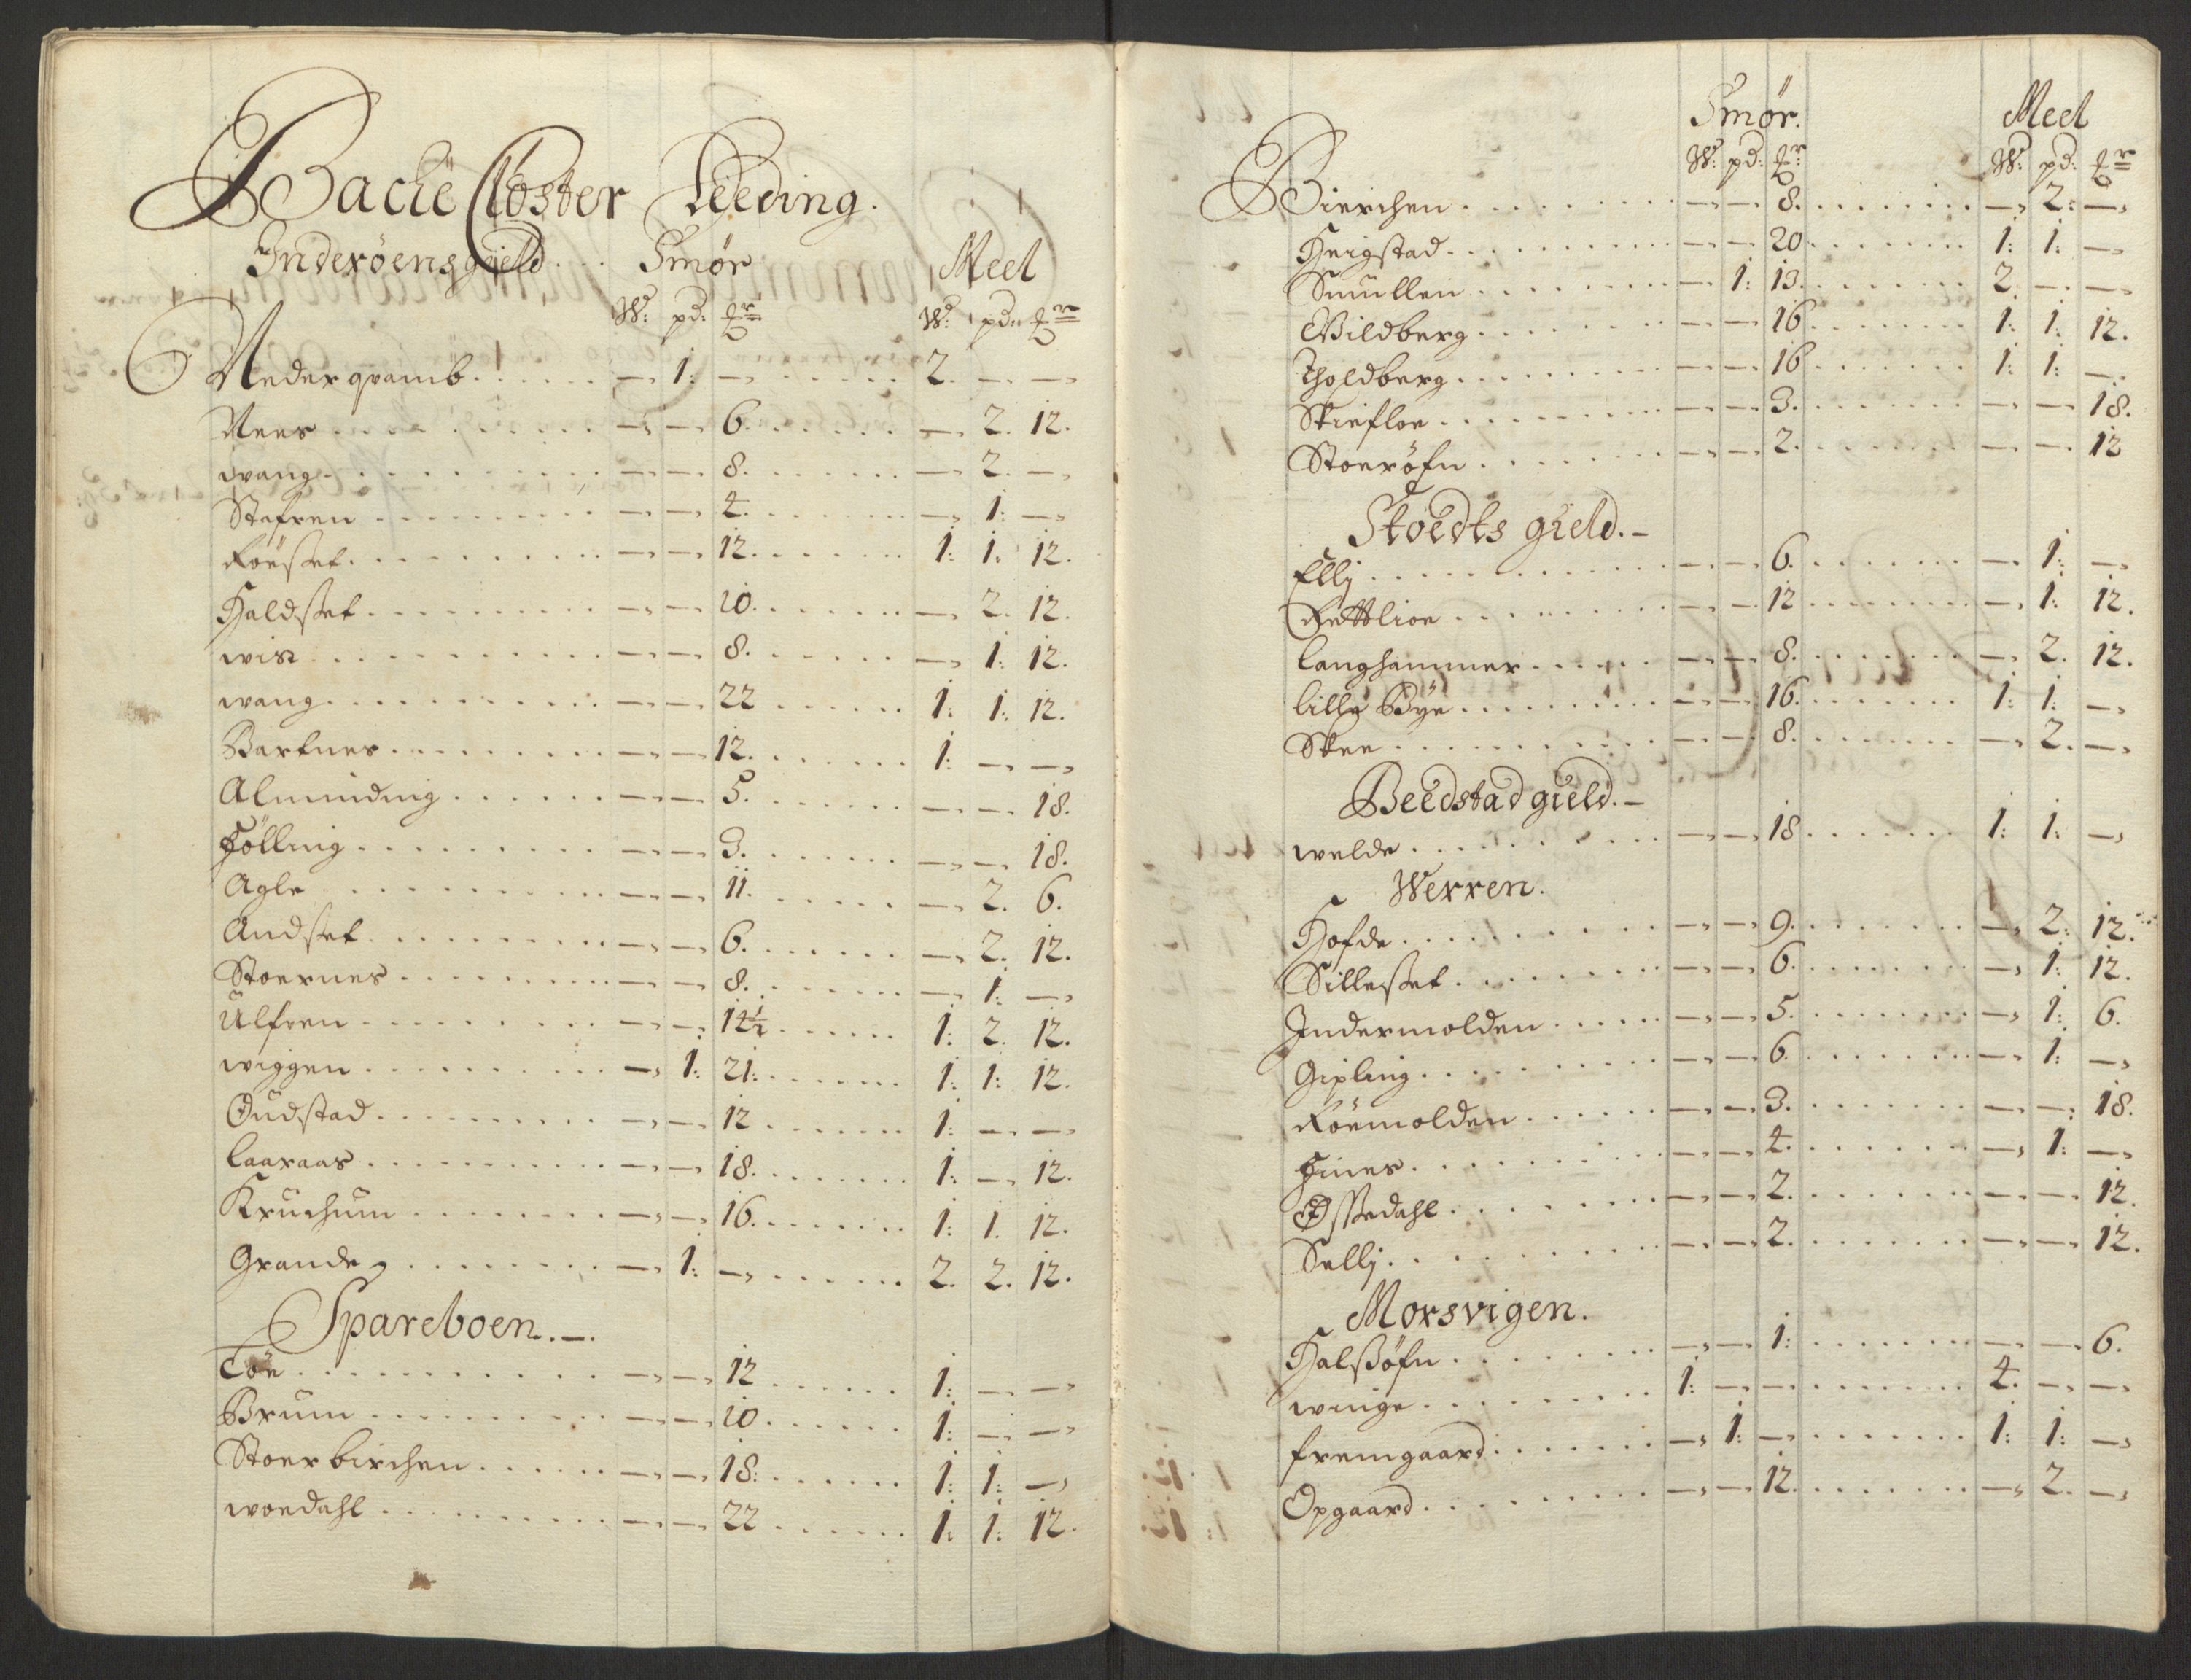 Bache Closter Leeding.
Inderöens gield . . . Smør Meel
W: pd: W: pd:
Nederqvamb . . . . . . — 1: — . . . . . . 2. — —
Nees . . . . . . — — 6. . . . . . — 2. 12.
wang . . . . . . — — 8. . . . . . — 2. —
Stafren . . . . . . — — 4. . . . . . — 1: —
Röesset . . . . . . — — 12. . . . . . 1: 1. 12.
Haldset . . . . . . — — 10. . . . . . — 2. 12.
wist . . . . . . — — 8. . . . . . — 1: 12.
wang . . . . . . — — 22 . . . . . . 1: 1: 12.
Bartnes . . . . . . — — 12. . . . . . 1: — —
Alminding . . . . . . — — 5. . . . . . — — 18.
Hölling . . . . . . — — 3. . . . . . — — 18.
Agle . . . . . . — — 11. . . . . . — 2. 6.
Andset . . . . . . — — 6. . . . . . — 2. 12.
Stoernes . . . . . . — — 8. . . . . . — 1: —
Ulfven . . . . . . — — 14½ . . . . . . 1: 2. 12.
wiggen . . . . . . — 1: 21: . . . . . . 1: 1: 12.
Oudstad . . . . . . — — 12 . . . . . . 1: — —
Laaraas . . . . . . — — 18. . . . . . 1: — 12.
Kruchum . . . . . . — — 16. . . . . . 1: 1. 12.
Grande . . . . . . — 1: — . . . . . . 2. 2. 12.
Spareboen. —.
Töe . . . . . . — — 12 . . . . . . 1: — —
Brum . . . . . . — — 10 . . . . . . 1: — —
Stoerbirchen . . . . . . — — 18: . . . . . . 1: 1: —
woedahl . . . . . . — — 22 . . . . . . 1: 1: 12.
Smør. Meel
W: pd: W: pd:
Bierchen . . . . . . — — 8. . . . . . — 2: —
Heigstad . . . . . . — — 20 . . . . . . 1: 1: —
Smullen . . . . . . — 1: 13. . . . . . 2. — —
Wildberg . . . . . . — — 16 . . . . . . 1: 1: 12.
Tholdberg . . . . . . — — 16 . . . . . . 1: 1: —
Skiefloe . . . . . . — — 3. . . . . . — — 18.
Stoeröfn . . . . . . — — 2. . . . . . — — 12
Stoedts gield. —
Ellj . . . . . . — — 6. . . . . . — 1: —
Rettlioe . . . . . . — — 12 . . . . . . — 1: 12.
langhammer . . . . . . — — 8. . . . . . — 2. 12.
lille Bye . . . . . . — — 16. . . . . . 1: 1: —
Skee . . . . . . — — 8. . . . . . — 2. —
Beedstad gield. —
welde . . . . . . — — 18 . . . . . . 1: 1: —
Werren.
Hofde . . . . . . — — 9. . . . . . — 2: 12.
Sillesset . . . . . . — — 6. . . . . . — 1: 12.
Indermolden . . . . . . — — 5. . . . . . — 1: 6.
Gipling . . . . . . — — 6. . . . . . — 1: —
Röemolden . . . . . . — — 3. . . . . . — — 18.
Fines . . . . . . — — 4. . . . . . — 1: —
Østedahl . . . . . . — — 2. . . . . . — — 12.
Sellj . . . . . . — — 2. . . . . . — — 12.
Morsvigen.
Halsöfn . . . . . . — — 1: . . . . . . — — 6.
winge . . . . . . 1: — — . . . . . . 4. — —
fremgaard . . . . . . — 1: — . . . . . . 1: 1: —
Opgaard . . . . . . — — 12. . . . . . — 2. —